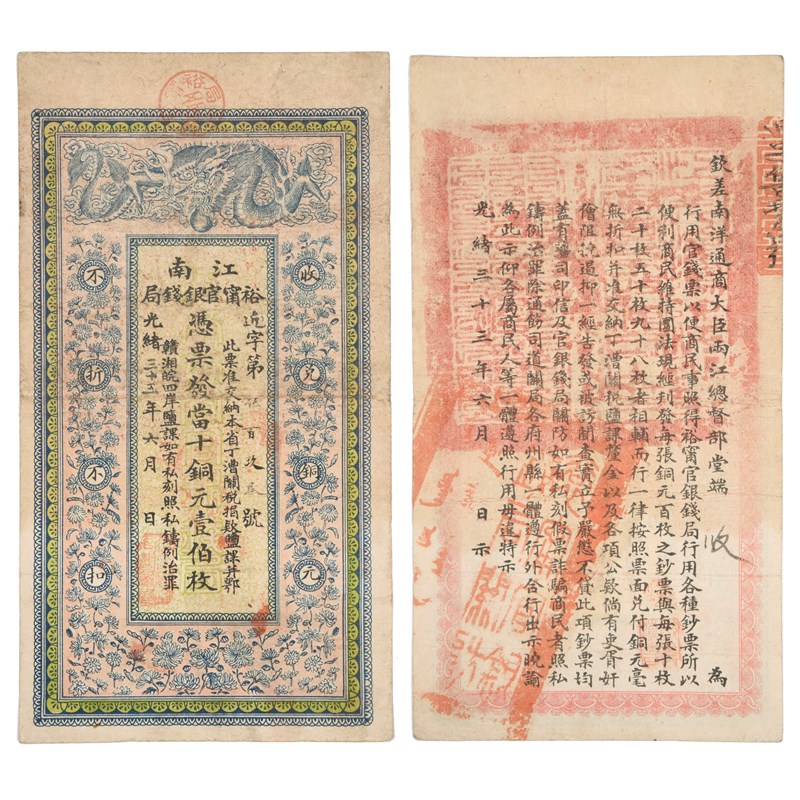 江南
裕甯官銀錢局
近字第 百玖 號
憑票發當十銅元壹伯枚
光緒三十三年六月 日
此票准交納本省丁漕關稅捐款鹽課并鄂
贛湘皖四岸鹽課如有私刻照私鑄例治罪
收兌銅元
不折不扣
欽差南洋通商大臣兩江總督部堂端 為
行用官錢票以便商民事照得裕甯官銀錢局行用各種鈔票所以
便利商民維持圜法現經刊發每張銅元百枚之鈔票與每張十枚
二十枚五十枚九十八枚者相輔而行一律按照票面兌付銅元毫
無折扣并准交納丁漕關稅鹽課釐金以及各項公款倘有吏胥奸
儈阻撓遏抑一經告發或被訪聞查實立予嚴懲不貸此項鈔票均
蓋有鹽司印信及官銀錢局關防如有私刻假票詐騙商民者照私
鑄例治罪除通飭司道關局各府州縣一體遵行外合行出示曉諭
為此示仰各屬商民人等一體遵照行用毋違特示
光緒三十三年六月 日示
收